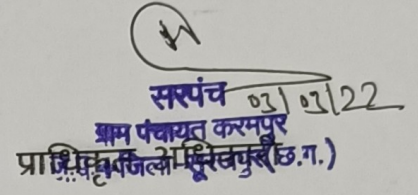 सरपंच 03/03/22
ग्राम पंचायत करमपुर
प्राधिकृत अधिकारी
जिला सूरजपुर (छ.ग.)